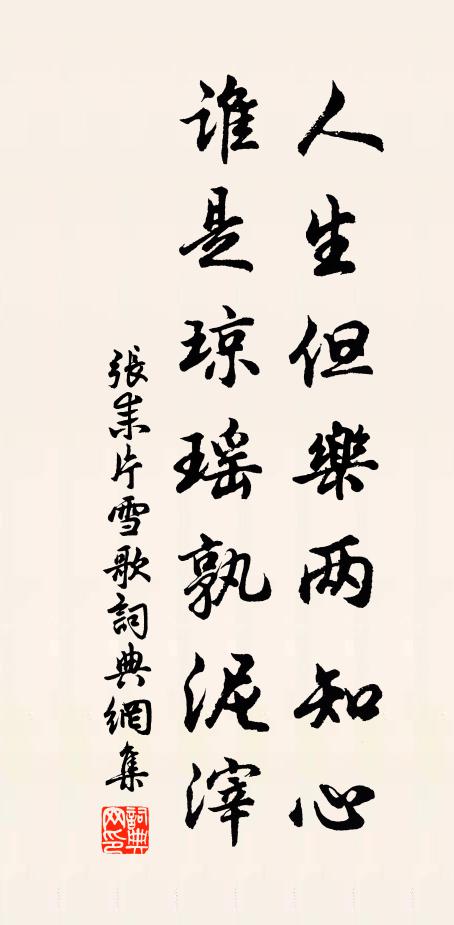 人生但樂两知心
谁是琼瑶孰泥滓
張耒片雪歌詞典網集
詞典网印